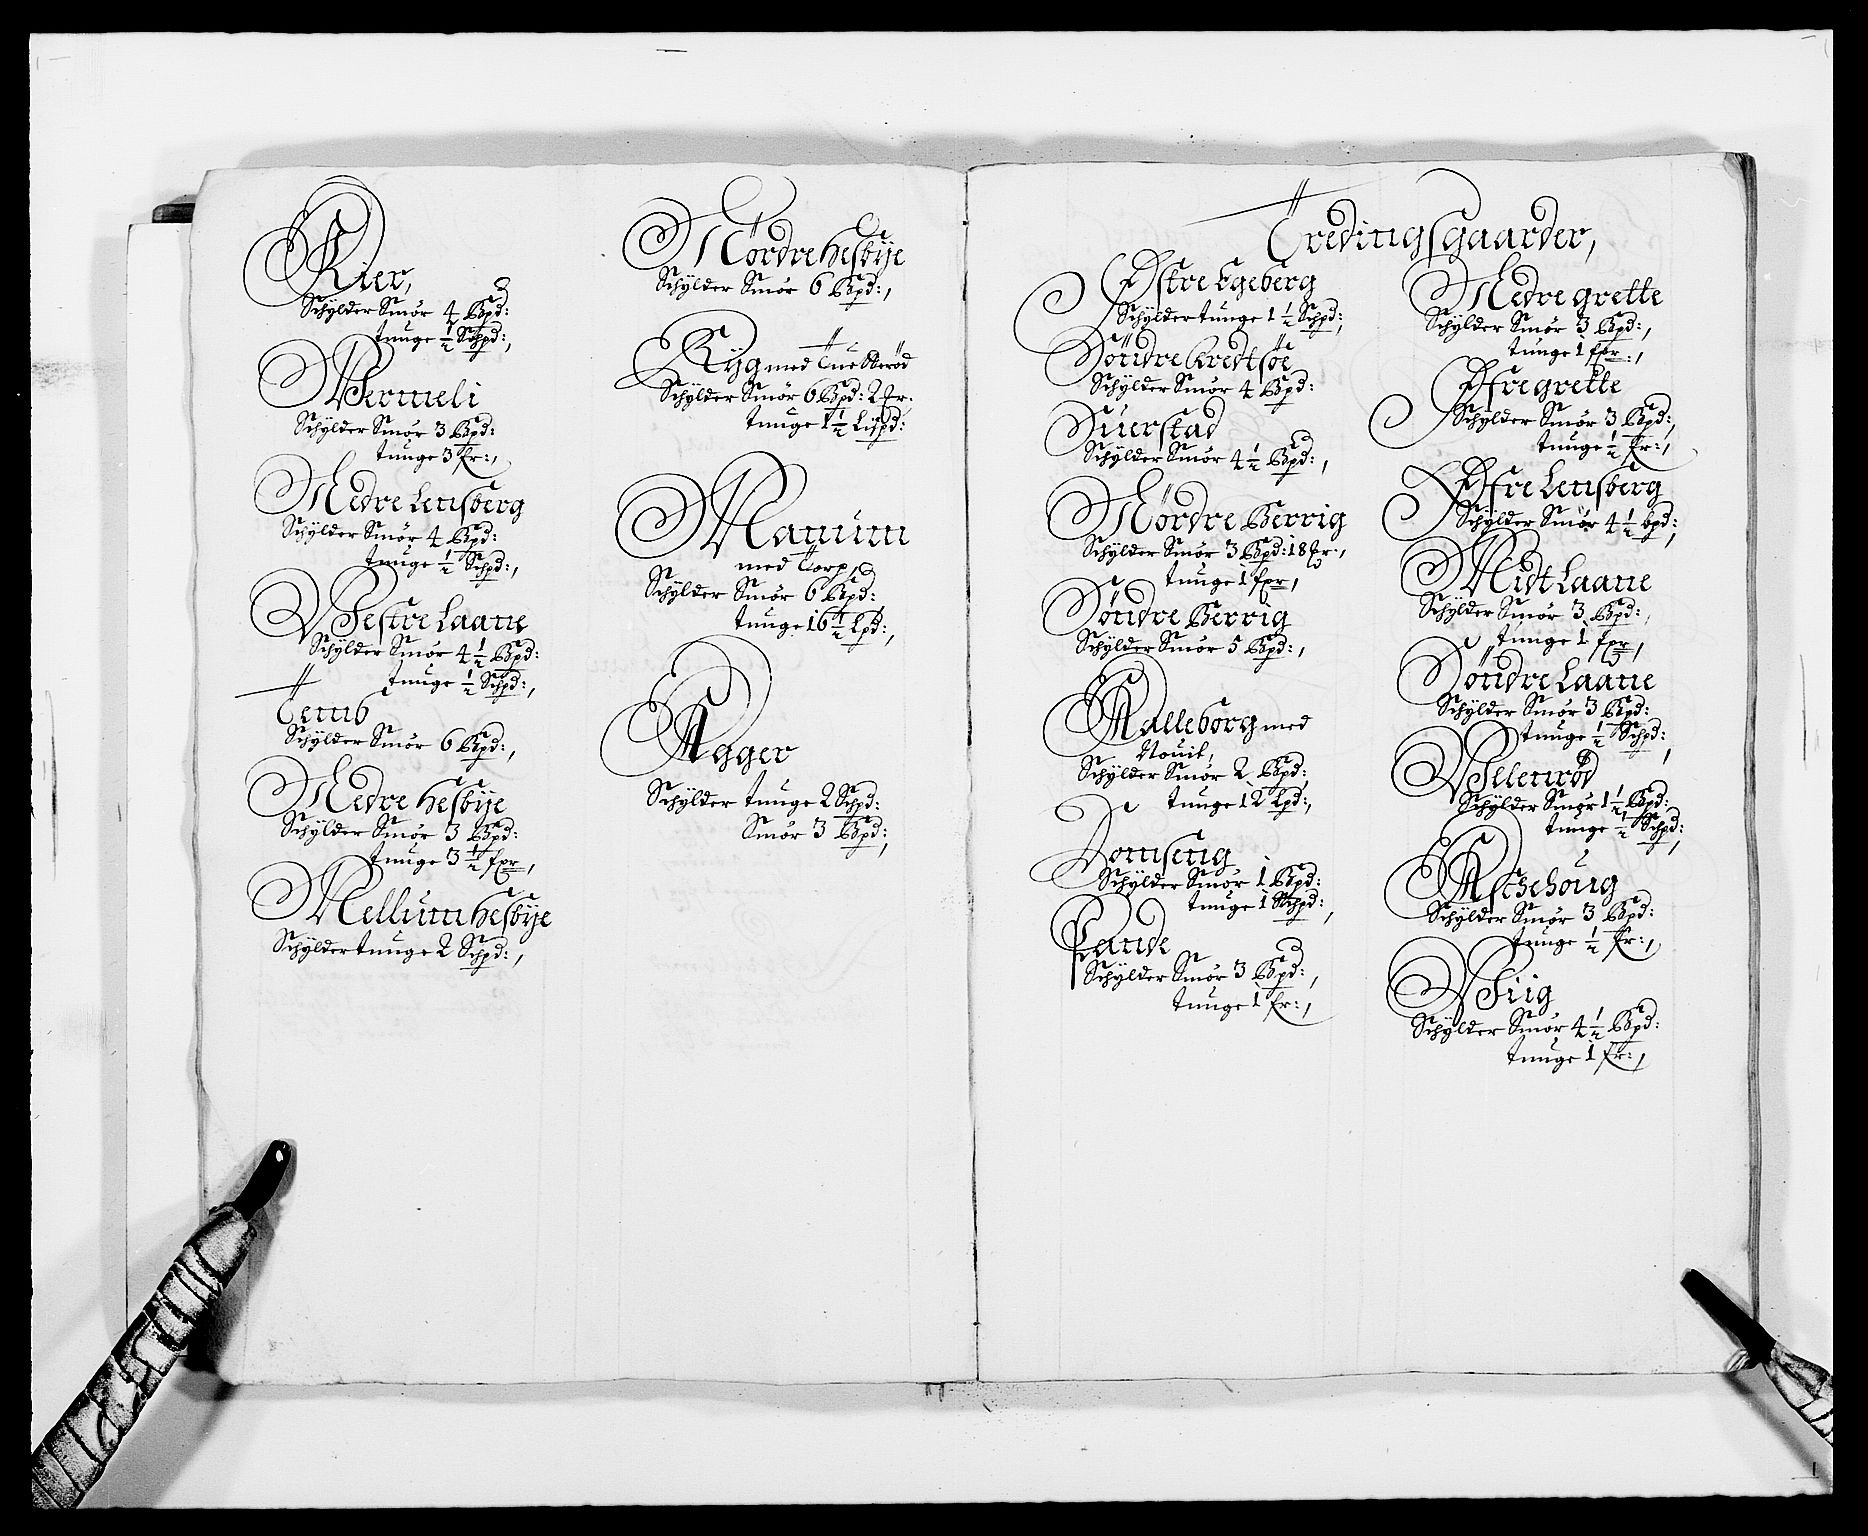 Kier,
Schylder Smør 4 Bpd:
tunge ½ Schpd:,
Wermeli
Schylder Smør 3 Bpd:
tunge 3 fr:,
Nedre Lensberg
Schylder Smør 4 Bpd:
tunge ½ Schpd:,
Westre Laane
Schylder Smør 4½ Bpd:
tunge ½ Schpd:,
Temb
Schylder Smør 6 Bpd:,
Nedre Hesbÿe
Schylder Smør 3 Bpd:
tunge 3½ fpr,
Mellum Hesbÿe
Schylder tunge 2 Schpd:,
Nordre Hesbÿe
Schylder Smør 6 Bpd:,
Ryg med
Schylder Smør 6 Bpd: 2 fr.
tunge 1½ Lispd:
Manum
med Torp,
Schylder Smør 6 Bpd:
tunge 16½ Lpd:,
Agger
Schylder tunge 2 Schpd:
Smør 3 Bpd:,
Tredingsgaarder,
Østre Egeberg
Schylder tunge 1½ Schpd:,
Söndre Kredtsöe
Schylder Smør 4 Bpd:
Suerstad
Schylder Smør 4½ Bpd:,
Nordre Berrig
Schylder Smør 3 Bpd: 18 fr:,
tunge 1 fpr,
Söndre Berrig
Schylder Smør 5 Bpd:,
Kalleborg med
Schylder Smør 2 Bpd:
tunge 12 Lpd:,
Domseng
Schylder Smør 1 Bpd:
tunge 1 Schpd:,
Sande
Schylder Smør 3 Bpd:,
tunge 1 fr:,
Nedre grette
Schylder Smør 3 Bpd:,
tunge 1 fpr:,
Øfre grette
Schylder Smør 3 Bpd:,
tunge ½ fr:,
Øfre Lensberg
Schylder Smør 4½ bpd:,
Midt Laane
Schylder Smør 3 Bpd:,
tunge 1 fpr,
Söndre Laane
Schylder Smør 3 Bpd:
tunge ½ Schpd:,
Wellenrød
Schylder Smør 1½ Bpd:
tunge ½ Schpd:,
Aschehoug
Schylder Smør 3 Bpd:
tunge ½ fr:,
Wiig
Schylder Smør 4½ Bpd:
tunge 1 fr:,